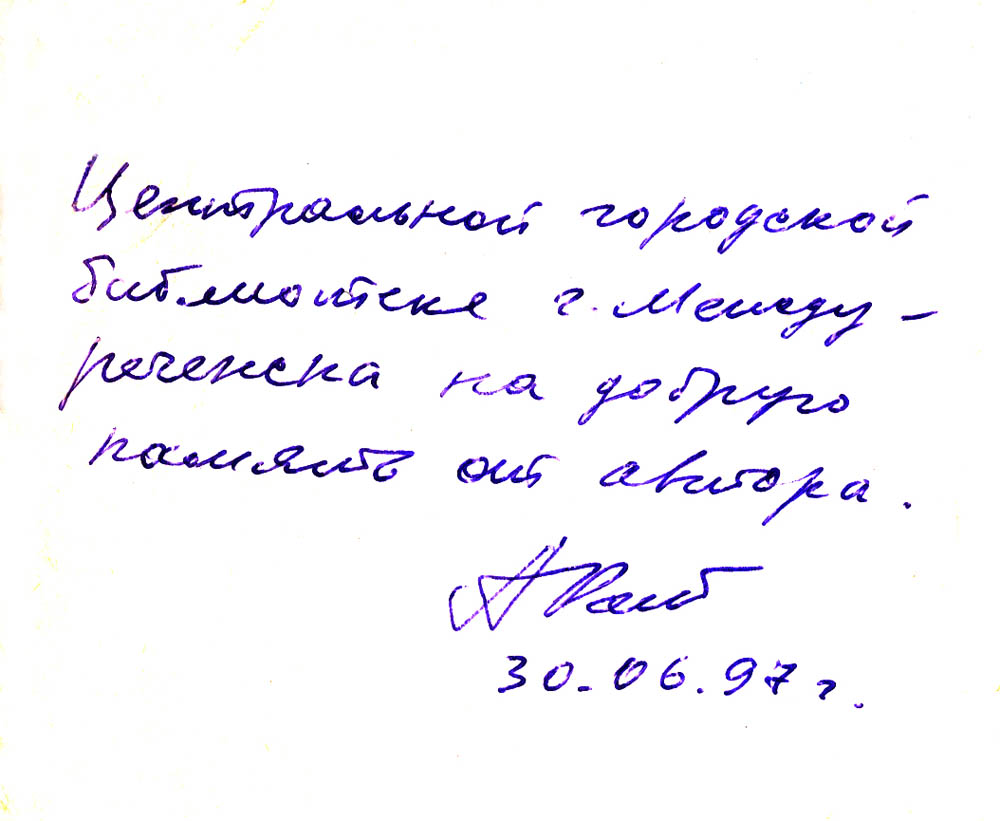 Центральной городской
библиотеке г. Между-
реченска на добрую
память от автора.
30.06.97 г.